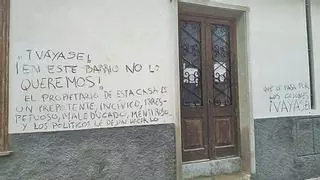 ¡VÁYASE!
¡EN ESTE BARRIO NO LO
QUEREMOS!
EL PROPIETARIO DE ESTA CASA ES
UN PREPOTENTE, INCÍVICO, IRRES-
PETUOSO, MALEDUCADO, MENTIROSO
Y LOS POLÍTICOS LE DEJAN HACERLO
QUE SE PASA POR
LOS COJONES
¡VAYASE!